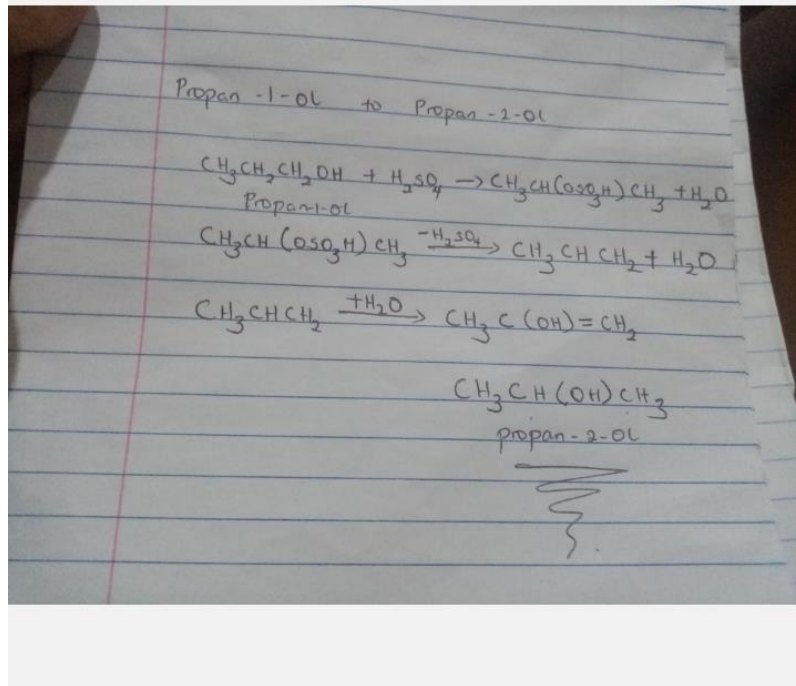 Propan -1-OL to Propan-2-OL
CH₃CH₂CH₂OH + H₂SO₄ → CH₃CH(OSO₃H)CH₃ + H₂O
Propan-1-OL
CH₃CH(OSO₃H)CH₃ -H₂SO₄→ CH₃CHCH₂ + H₂O
CH₃CHCH₂ +H₂O→ CH₃C(OH)=CH₂
CH₃CH(OH)CH₃
propan-2-OL